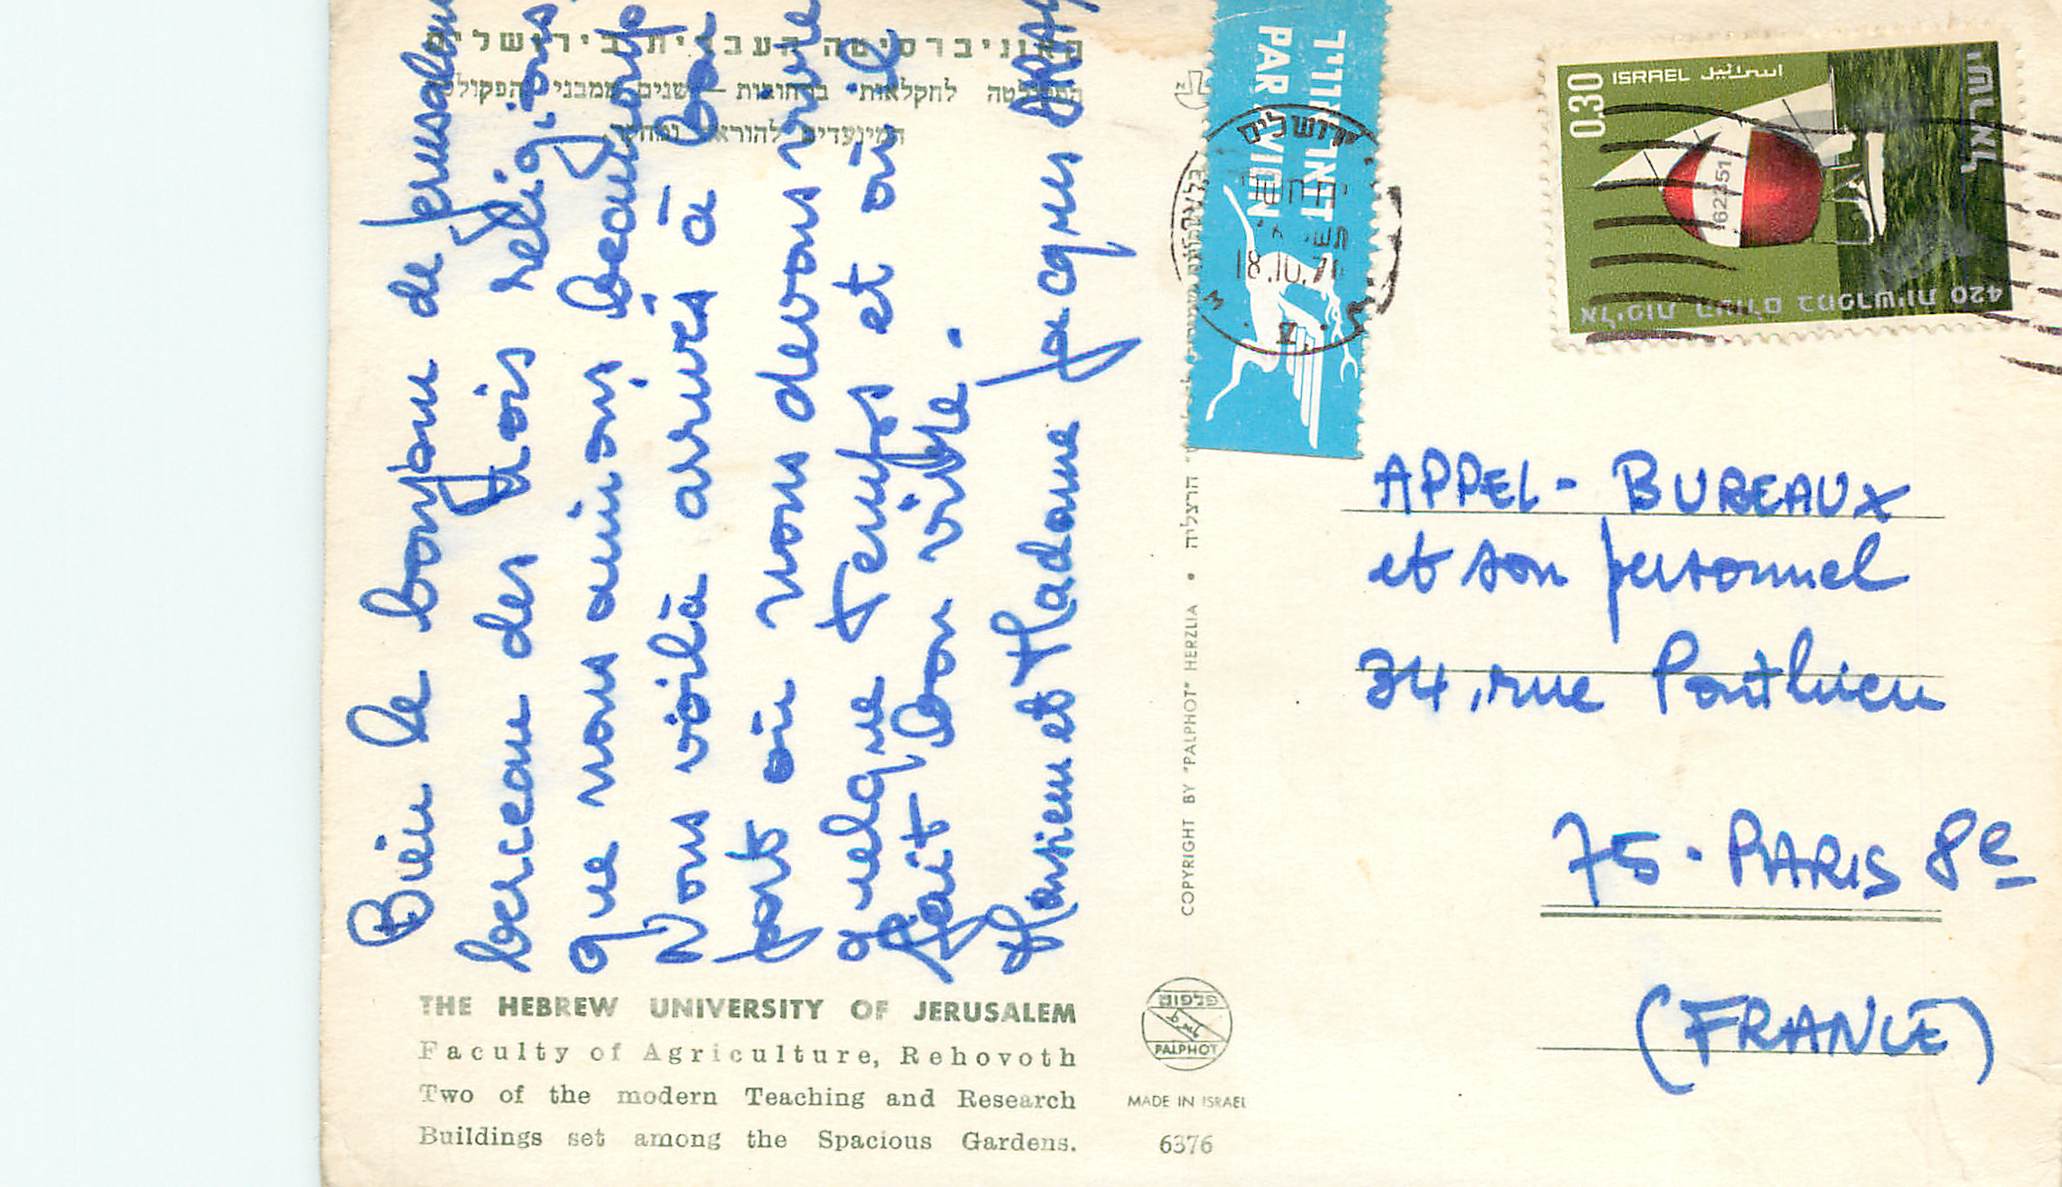 האוניברסיטה העברית בירושלים
הפקולטה לחקלאות ברחובות — שנים ממבני הפקולטה
המיועדים להוראה ומחקר
Bien le bonjour de Jerusalem
berceau des trois religions
que nous aimons beaucoup
Nous voilà arrivés à bon
port où nous devons vivre
quelque temps et où il
fait bon vivre.
Monsieur et Madame Jacques
THE HEBREW UNIVERSITY OF JERUSALEM
Faculty of Agriculture, Rehovoth
Two of the modern Teaching and Research
Buildings set among the Spacious Gardens.
COPYRIGHT BY "PALPHOT" HERZLIA • הרצליה
פלפוט
PALPHOT
MADE IN ISRAEL
6376
דאר אויר
PAR AVION
ירושלים
18.10.7
0.30 ISRAEL اسرائيل
ישראל
62251
אליפות העולם במפרשיות 420
APPEL - BUREAUX
et son personnel
34, rue Ponthieu
75 - PARIS 8e
(FRANCE)